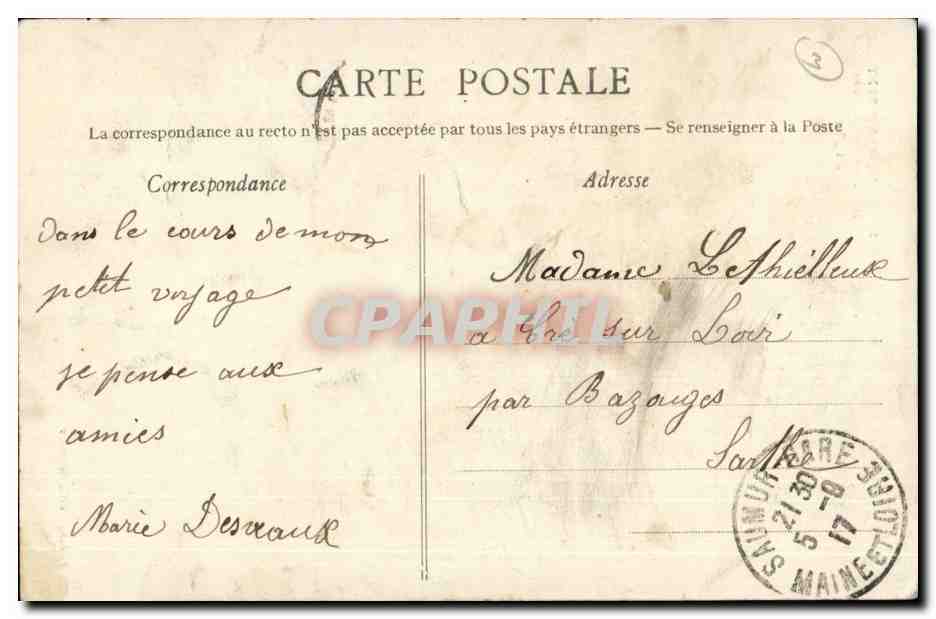 3
CARTE POSTALE
La correspondance au recto n'est pas acceptée par tous les pays étrangers — Se renseigner à la Poste
Correspondance
dans le cours de mon
petit voyage
je pense aux
amies
Marie Desvaux
Adresse
Madame Lethiélleux
a Cré sur Loir
par Bazouges
Sarthe
SAUMUR GARE
21 30
5 - 8
17
MAINE ET LOIRE
CPAPHIL